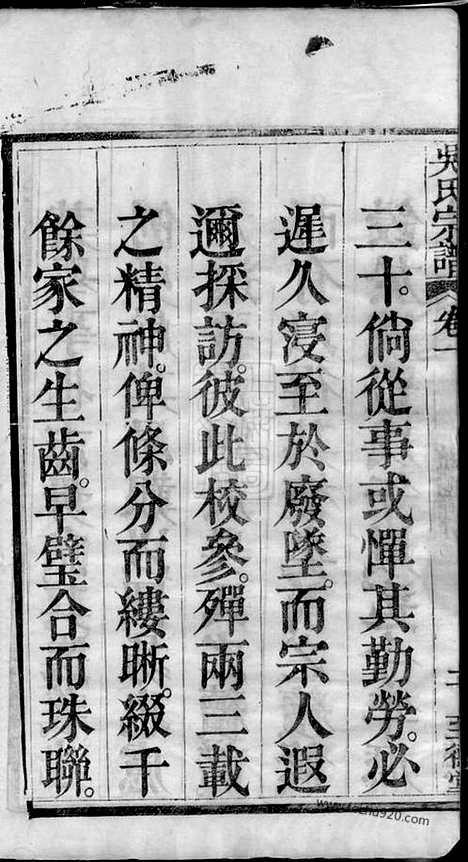 吳氏宗譜 卷一
三十。倘從事或憚其勤勞。必
遲久寖至於廢墜。而宗人遐
邇採訪。彼此校參。殫兩三載
之精神。俾條分而縷晰。綴千
餘家之生齒。早璧合而珠聯。
www.jiapu920.com